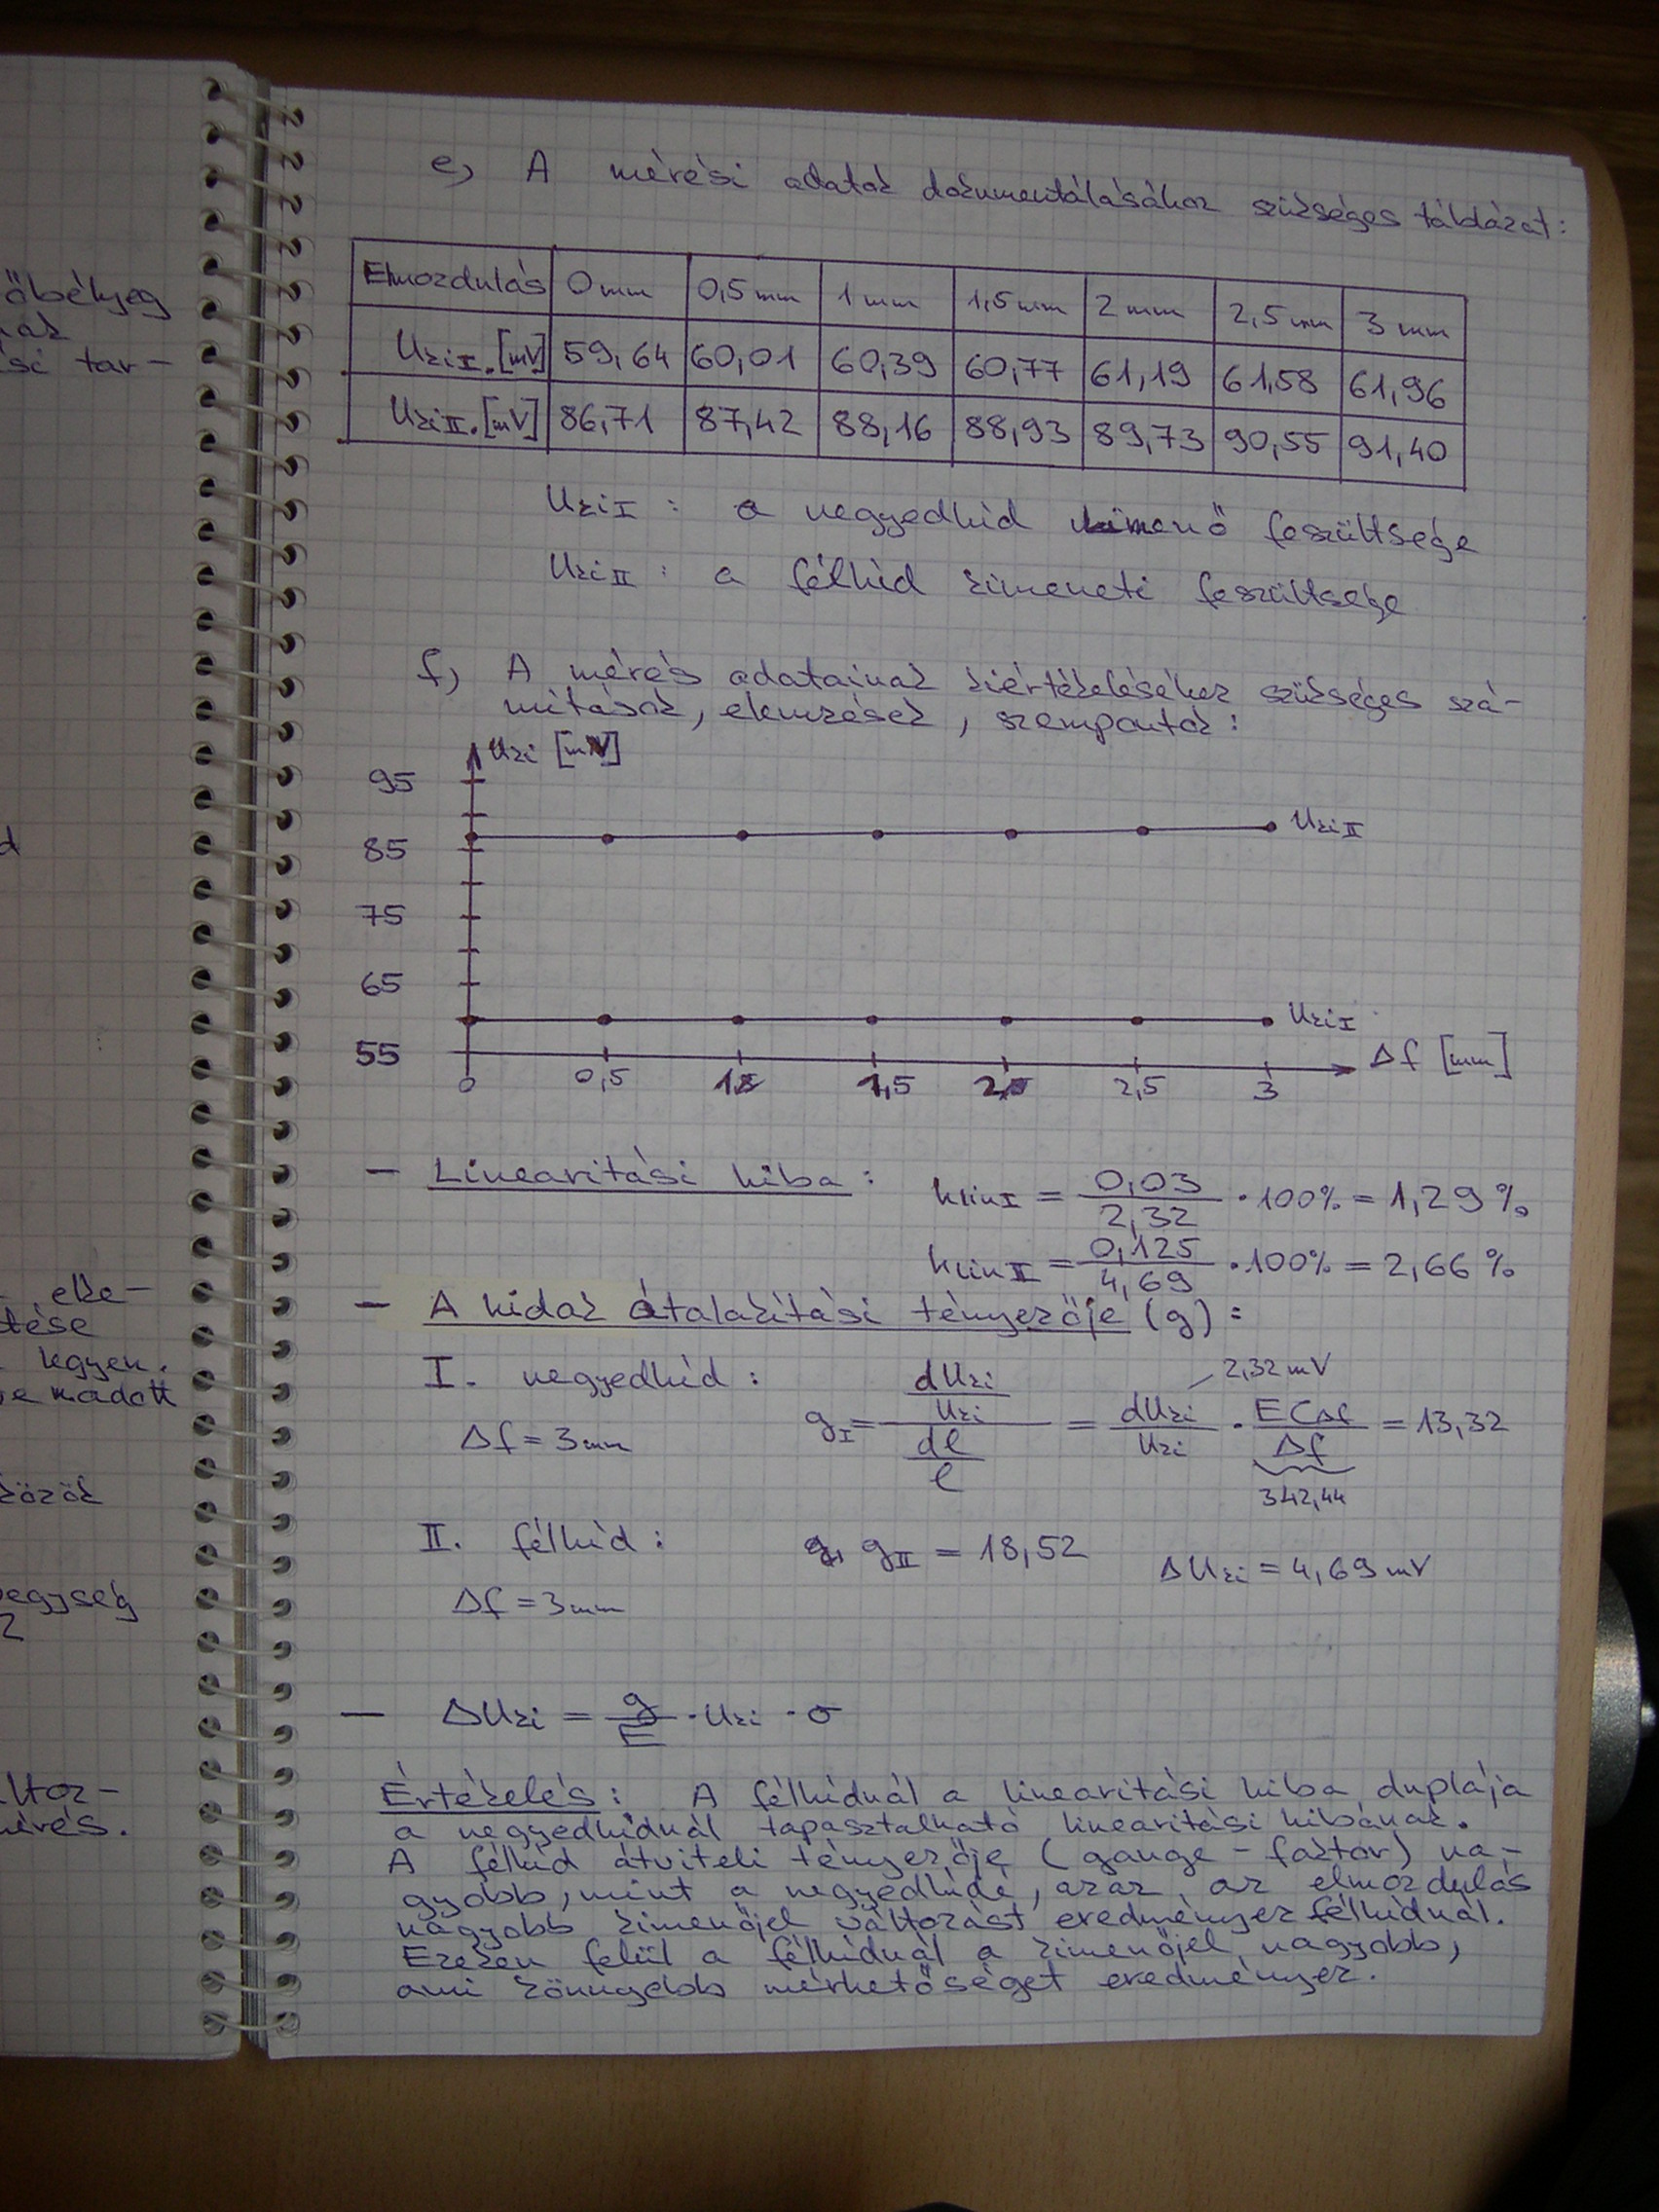 őbélyeg
si tar-
d
elle-
tése
legyen.
e kadott
közök
egység
2
ltoz-
mérés.
e) A mérési adatok dokumentálásához szükséges táblázat:
Elmozdulás 0 mm 0,5 mm 1 mm 1,5 mm 2 mm 2,5 mm 3 mm
UkiI. [mV] 59,64 60,01 60,39 60,77 61,19 61,58 61,96
UkiII. [mV] 86,71 87,42 88,16 88,93 89,73 90,55 91,40
UkiI : a negyedhíd kimenő feszültsége
UkiII : a félhíd kimeneti feszültsége
f) A mérés adatainak kiértékeléséhez szükséges szá-
mítások, elemzések, szempontok:
Uki [mV]
95
85
75
65
55
UkiII
UkiI
Δf [mm]
0 0,5 1 1,5 2 2,5 3
- Linearitási hiba: hlinI = 0,03/2,32 · 100% = 1,29 %
hlinII = 0,125/4,69 · 100% = 2,66 %
- A hidak átalakítási tényezője (g) :
I. negyedhíd : gI = (dUki/Uki)/(dl/l) = dUki/Uki · ECΔf/Δf = 13,32
2,32 mV
Δf = 3 mm
342,44
II. félhíd : gII = 18,52 ΔUki = 4,69 mV
Δf = 3 mm
- ΔUki = g/E · Uki · σ
Értékelés: A félhídnál a linearitási hiba duplája
a negyedhídnál tapasztalható linearitási hibának.
A félhíd átviteli tényezője (gauge-faktor) na-
gyobb, mint a negyedhídé, azaz az elmozdulás
nagyobb kimenőjel változást eredményez félhídnál.
Ezeken felül a félhídnál a kimenőjel nagyobb,
ami könnyebb mérhetőséget eredményez.